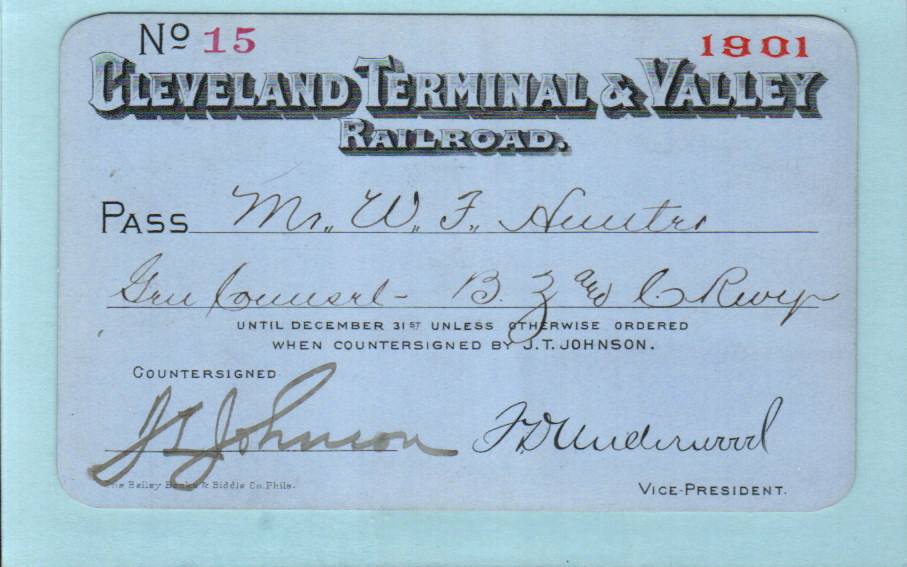 Nº 15 1901
CLEVELAND TERMINAL & VALLEY
RAILROAD.
PASS Mr. W. F. Hunter
Gen Counsel - B. Z and C Rwys
UNTIL DECEMBER 31ST UNLESS OTHERWISE ORDERED
WHEN COUNTERSIGNED BY J.T. JOHNSON.
COUNTERSIGNED
J T Johnson F D Underwood
The Bailey Banks & Biddle Co. Phila.
VICE-PRESIDENT.